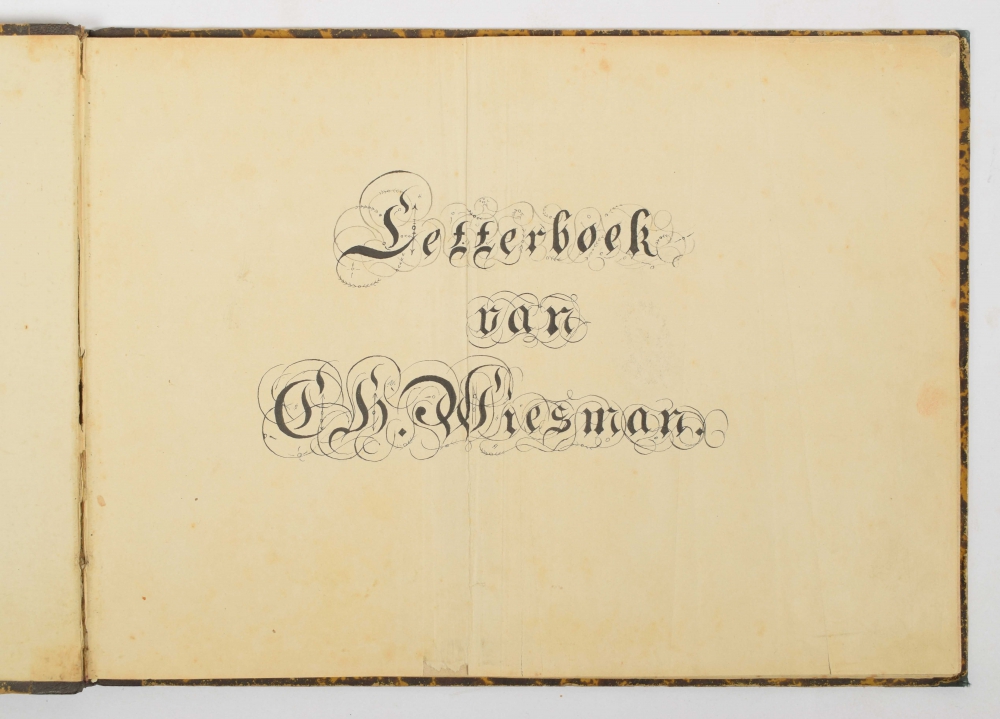 Letterboek
van
Th. Wiesman.